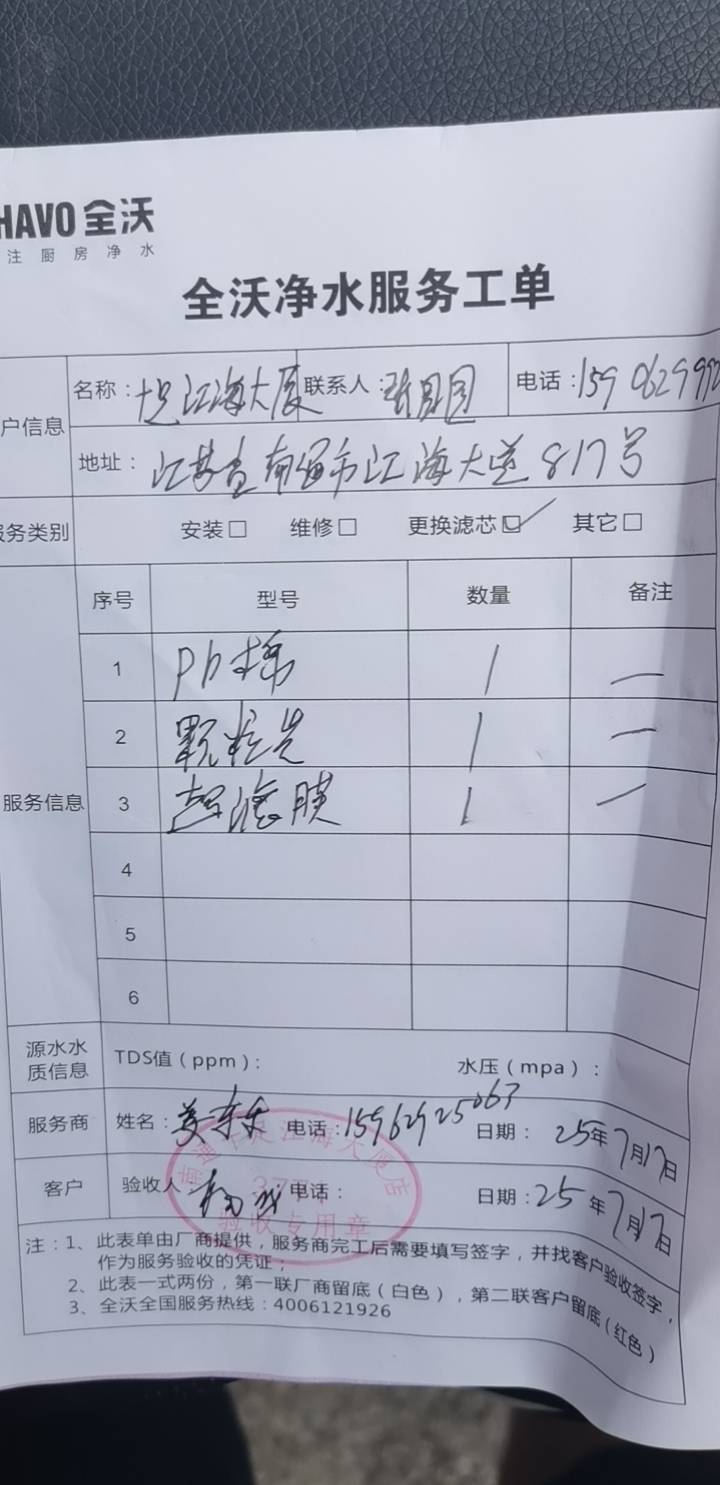 HAVO 全沃
注厨房净水
全沃净水服务工单
户信息
名称：大足江海大厦 联系人： 电话：159 062999
地址：江苏省南通市江海大道817号
服务类别 安装□ 维修□ 更换滤芯☑ 其它□
服务信息
序号 型号 数量 备注
1 PP棉 1 —
2 颗粒炭 1 —
3 超滤膜 1 —
4
5
6
源水水质信息 TDS值（ppm）： 水压（mpa）：
服务商 姓名： 电话：15962925063 日期：25年7月17日
客户 验收人 电话： 日期：25年7月17日
江海大厦店
验收专用章
注：1、此表单由厂商提供，服务商完工后需要填写签字，并找客户验收签字，
作为服务验收的凭证；
2、此表一式两份，第一联厂商留底（白色），第二联客户留底（红色）
3、全沃全国服务热线：4006121926